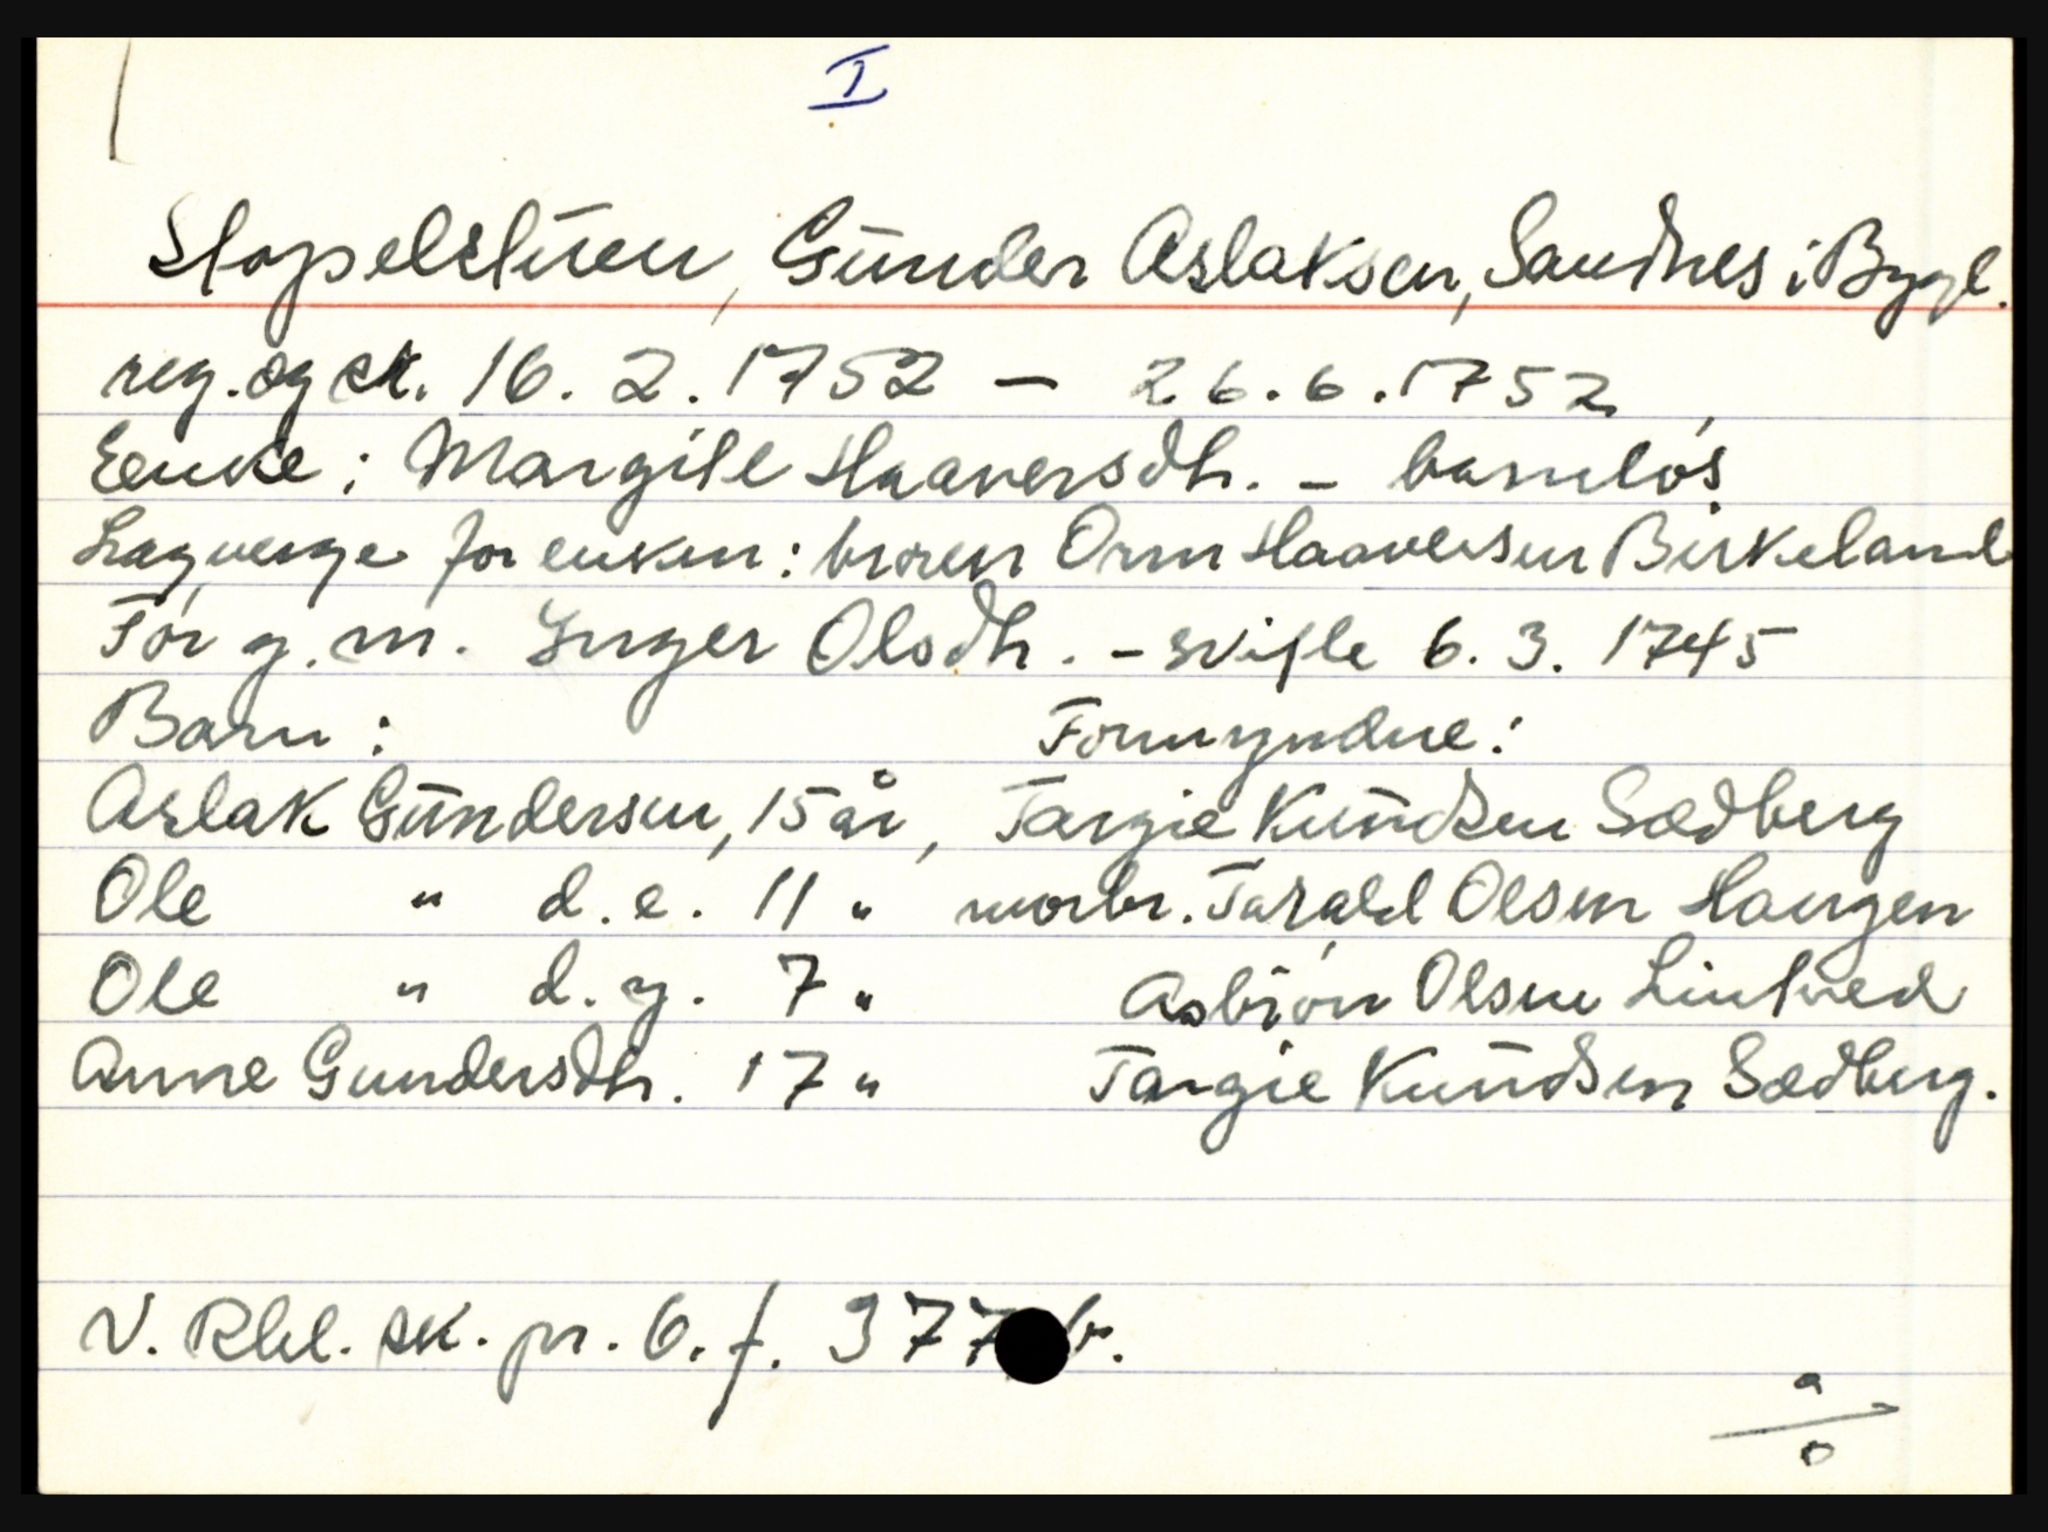 I
Stapelstuen, Gunder Aslaksen, Sandnes i Bygl.
reg. og sk. 16. 2. 1752 – 26. 6. 1752
Enke: Margitt Haaversdtr. – barnløs
Lagverge for enken: broren Orm Haaversen Birkeland
Før g. m. Inger Olsdtr. – skifte 6. 3. 1745
Barn: Formyndne:
Aslak Gundersen, 15 år, Targie Knudsen Sædberg
Ole " d.e. 11 " morbr. Tarald Olsen Haugen
Ole " d.y. 7 " Asbiørn Olsen Lintved
Anne Gundersdtr. 17 " Targie Knudsen Sædberg.
N. Rbl. sk. pr. 6. f. 377 b.
a
o